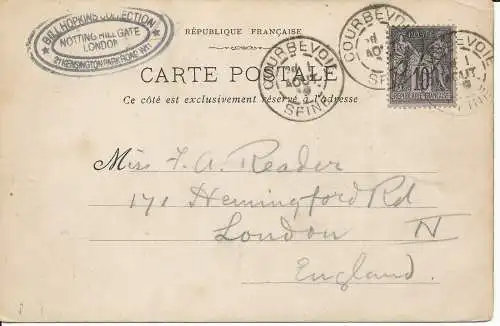 BILL HOPKINS COLLECTION
NOTTING HILL GATE
LONDON
KENSINGTON PARK ROAD W11
RÉPUBLIQUE FRANÇAISE
CARTE POSTALE
Ce côté est exclusivement réservé à l'adresse
COURBEVOIE
AOUT
SEINE
COURBEVOIE
SEINE
POSTE
10
REPUBLIQUE FRANCAISE
Miss F. A. Reader
171 Hemingford Rd
London N
England.